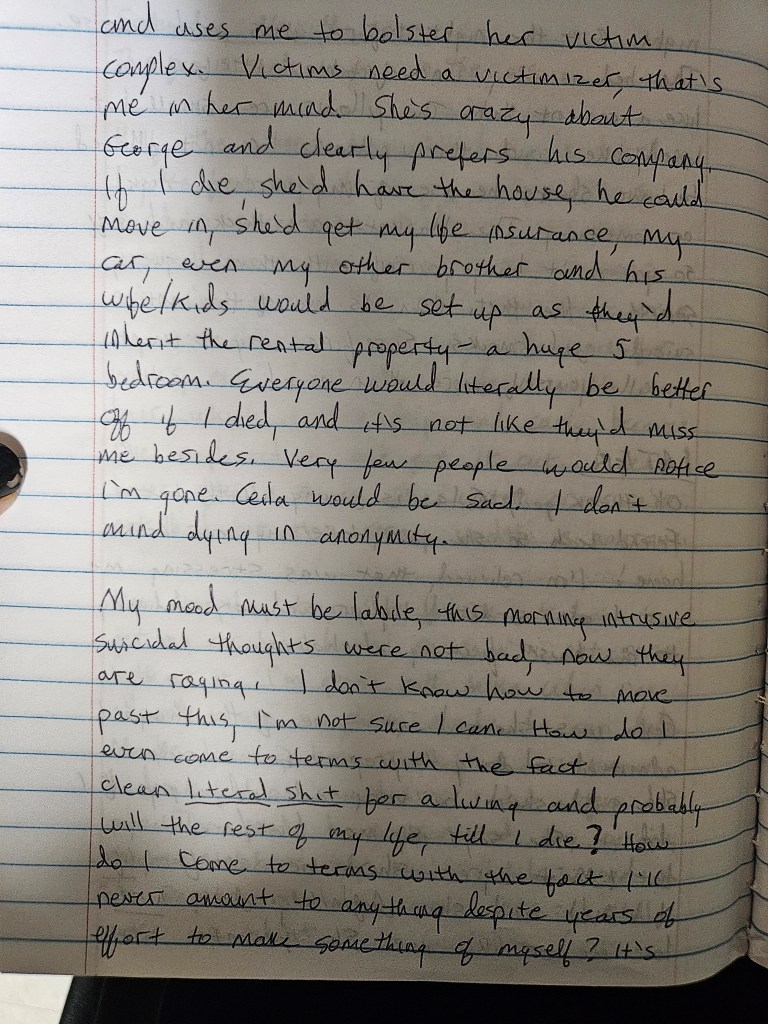 and uses me to bolster her victim
complex. Victims need a victimizer, that's
me in her mind. She's crazy about
George and clearly prefers his company.
If I die, she'd have the house, he could
move in, she'd get my life insurance, my
car, even my other brother and his
wife/kids would be set up as they'd
inherit the rental property - a huge 5
bedroom. Everyone would literally be better
off if I died, and it's not like they'd miss
me besides. Very few people would notice
I'm gone. Ceila would be sad. I don't
mind dying in anonymity.
My mood must be labile, this morning intrusive
suicidal thoughts were not bad, now they
are raging. I don't know how to move
past this, I'm not sure I can. How do I
even come to terms with the fact I
clean literal shit for a living and probably
will the rest of my life, till I die? How
do I come to terms with the fact I'll
never amount to anything despite years of
effort to make something of myself? It's